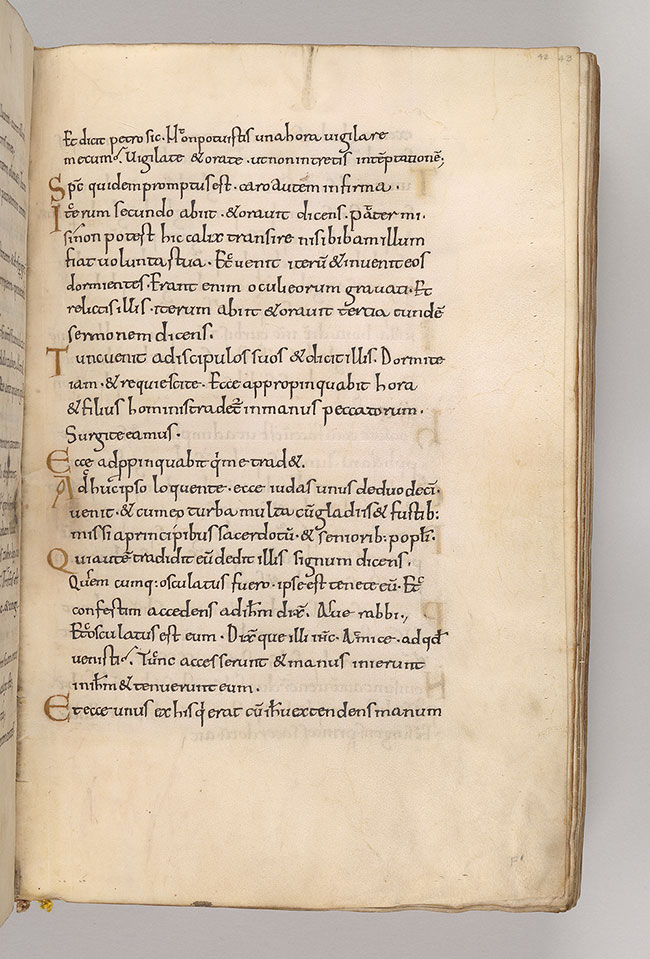 42 43
Et dicit petro sic. Non potuistis una hora vigilare
mecum. Vigilate & orate. ut non intretis intēptationē;
Spc̄ quidem promptus est. caro autem infirma.
Iterum secundo abiit. & oravit dicens. pater mi.
si non potest hic calix transire nisi bibam illum
fiat voluntas tua. Et venit iterū & invenit eos
dormientes. Erant enim oculi eorum gravati. Et
relictis illis. iterum abiit & oravit tertia eundē
sermonem dicens.
Tunc venit ad discipulos suos & dicit illis. Dormite
iam. & requiescite. Ecce appropinquabit hora
& filius hominis tradet̄ in manus peccatorum.
Surgite eamus.
Ecce adp̄pinquabit qi me trad&.
Adhuc ipso loquente. ecce iudas unus de duodeci.
venit. & cum eo turba multa cū gladiis & fustib:
missi a principibus sacerdotū. & seniorib: popli.
Qui autē tradidit eū dedit illis signum dicens.
Quem cumq: osculatus fuero. ipse est tenete eū. Et
confestim accedens ad ihm dix̄. Ave rabbi.,
Et osculatus est eum. Dix̄que illi ihc. Amice. ad qd
venisti. Tunc accesserunt & manus iniecerunt
in ihm & tenuerunt eum.
Et ecce unus ex his q̄ erat cū ihu extendens manum